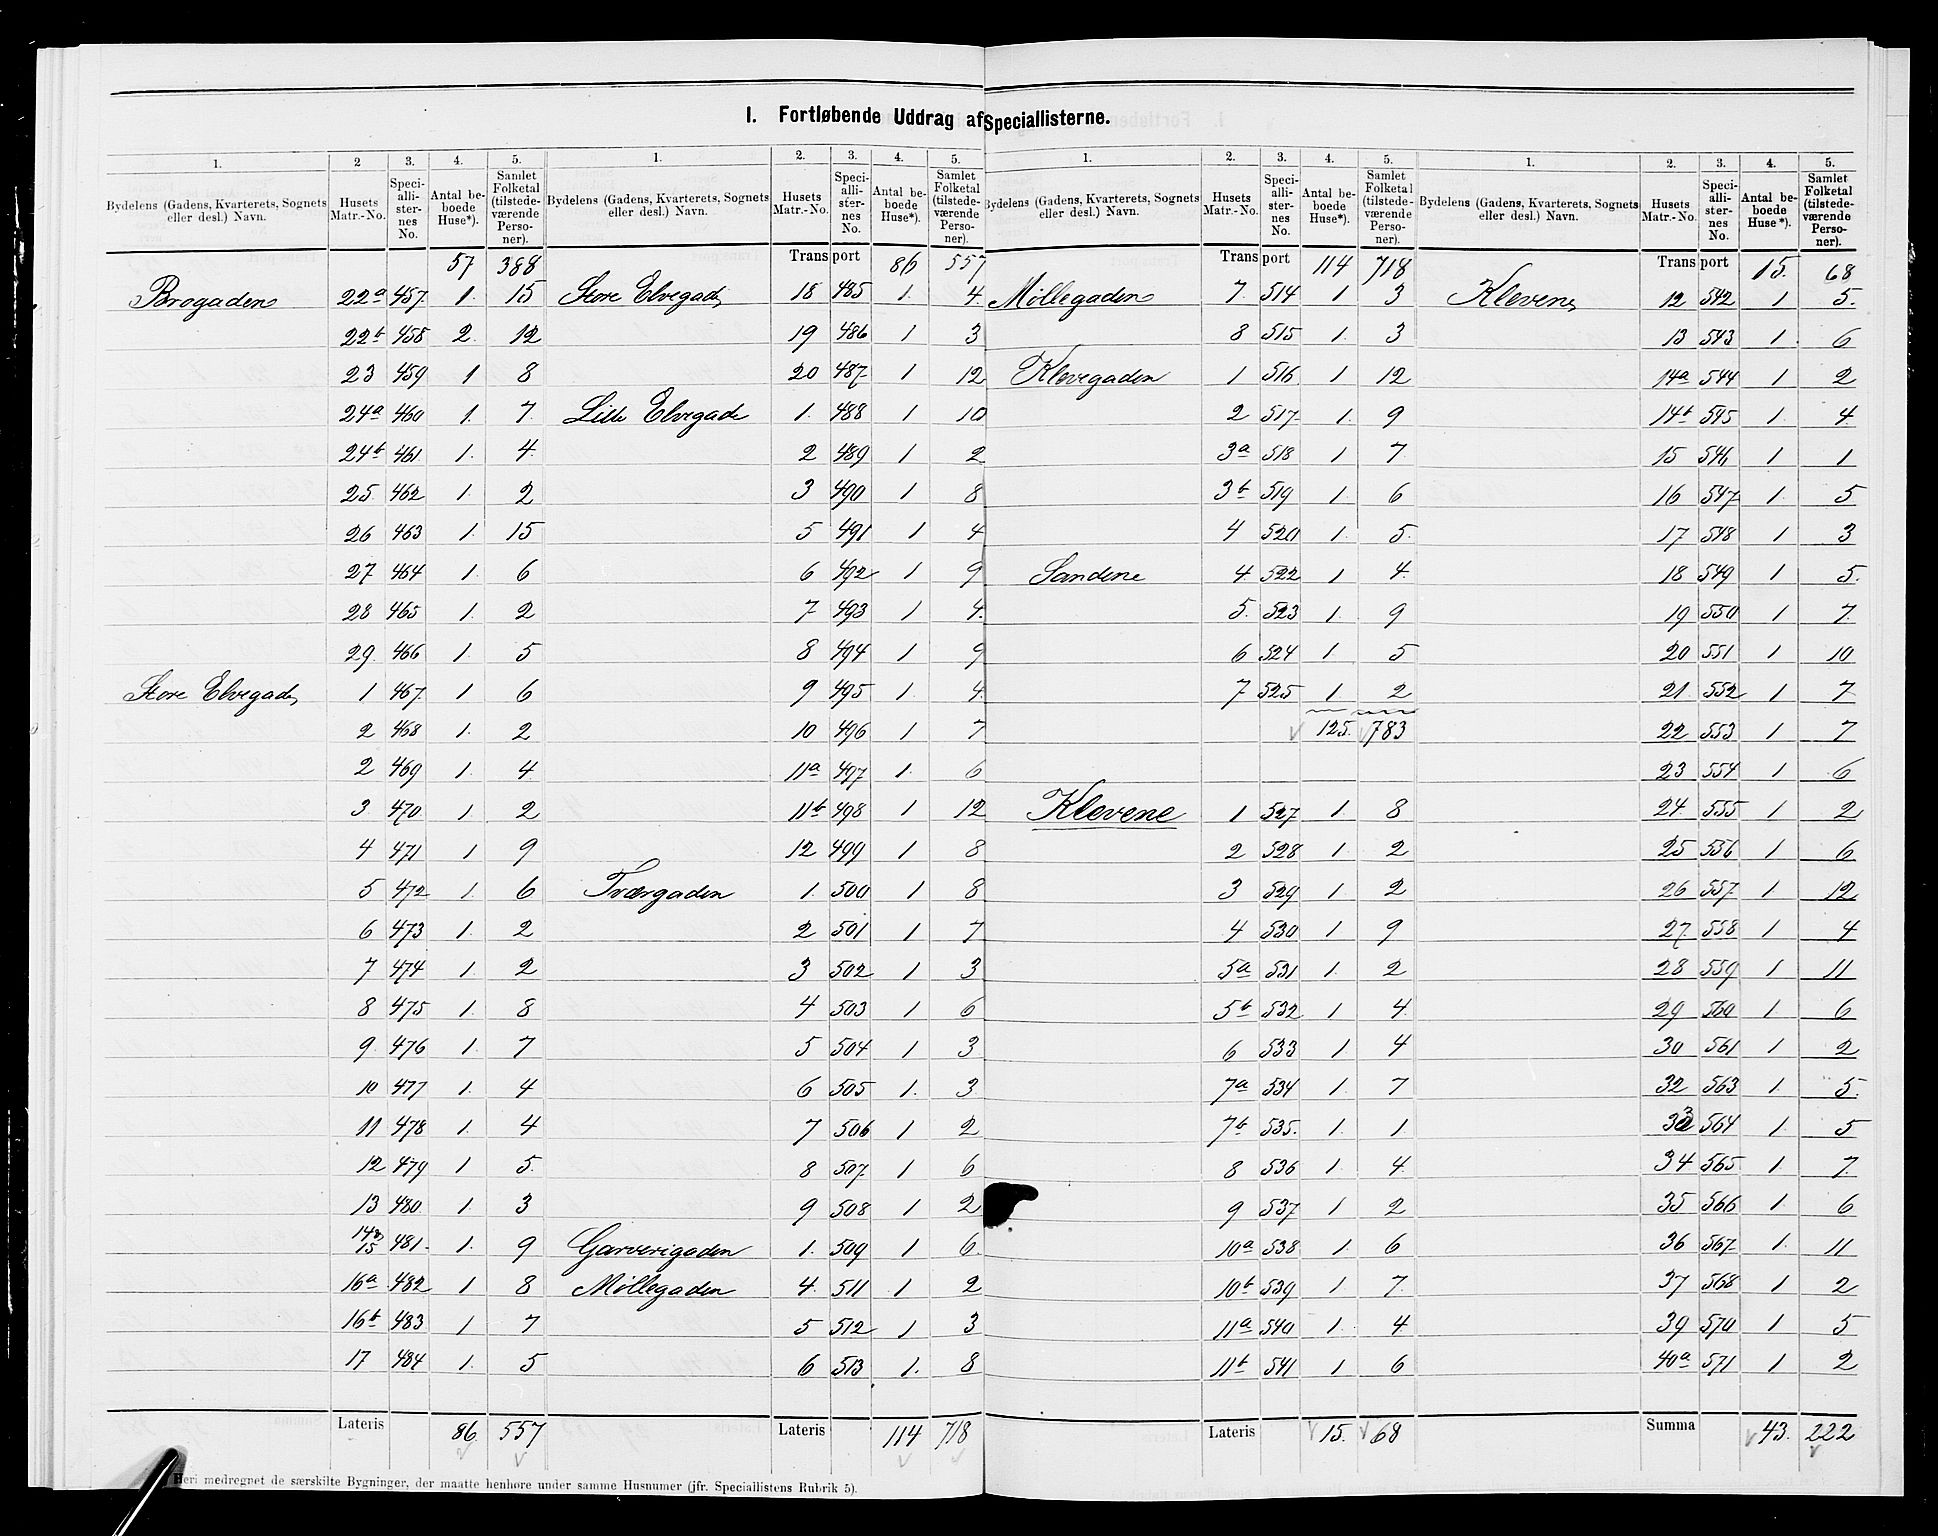 I. Fortløbende Uddrag af Speciallisterne.
1. 2 3. 4. 5.
Bydelens (Gadens, Kvarterets, Sognets eller desl.) Navn. Husets Matr.-No. Specialli-ster-nes No. Antal beboede Huse*). Samlet Folketal (tilstedeværende Personer).
57 388
Brogaden 22a 457 1. 15
22b 458 2. 12
23 459 1 8
24a 460 1. 7.
24b 461 1. 4.
25. 462 1. 2
26 463 1. 15
27 464 1. 6
28 465 1. 2
29. 466 1. 5
Store Elvegade 1 467. 1 6
2 468 1. 2
2 469 1. 4
3. 470. 1 2
4 471 1 9
5 472 1. 6
6 473 1. 2
7 474 1. 2
8 475 1. 8
9. 476 1. 7
10 477 1. 4
11 478 1. 4
12 479 1 5.
13 480 1. 3
14& 15 481. 1. 9
16a 482 1 8
16b 483 1 7
17 484 1. 5
Lateris 86. 557
1. 2. 3. 4. 5.
Bydelens (Gadens, Kvarterets, Sognets eller desl.) Navn. Husets Matr.-No. Specialli-ster-nes No. Antal beboede Huse*). Samlet Folketal (tilstedeværende Personer).
Transport 86 557
Store Elvegade 18 485 1. 4
19 486 1 3
20 487 1 12
Lille Elvegade 1. 488 1 10
2 489 1 2
3 490 1 8
5 491 1 4
6 492 1 9
7 493 1 4.
8 494 1 9
9 495 1. 4
10 496 1 7
11a 497 1. 6
11b 498 1 12
12 499 1 8
Tværgaden 1. 500 1 8
2 501 1 7
3 502 1 3
4 503 1 6
5 504 1 3
6 505 1. 3
7 506 1 2
8 507. 1 6
9 508 1 2
Garverigaden 1. 509 1 6.
Møllegaden 4. 511 1 2
5 512 1 3
6 513 1. 8
Lateris 114 718
1. 2. 3. 4. 5.
Bydelens (Gadens, Kvarterets, Sognets eller desl.) Navn. Husets Matr.-No. Specialli-ster-nes No. Antal beboede Huse*). Samlet Folketal (tilstedeværende Personer).
Transport 114 718
Møllegaden 7. 514 1 3
8 515 1. 3
Klevegaden 1 516 1 12
2 517. 1. 9
3a 518 1 7.
3b 519 1. 6
4 520 1. 5.
Sandene 4 522 1 4.
5. 523 1. 9
6 524 1. 5
7 525 1 2
125. 783
Klevene 1 527 1. 8
2 528 1. 2
3 529 1. 2
4 530 1 9
5a 531 1. 2
5b 532 1 4.
6 533 1. 4
7a 534 1. 7
7b 535. 1. 1.
8 536 1. 4.
9 537 1. 2
10a 538 1. 6
10b 539 1 7.
11a 540 1. 4.
11b 541 1 6
Lateris 15. 68
1. 2. 3. 4. 5.
Bydelens (Gadens, Kvarterets, Sognets eller desl.) Navn. Husets Matr.-No. Specialli-ster-nes No. Antal beboede Huse*). Samlet Folketal (tilstedeværende Personer).
Transport 15. 68
Klevene 12 542 1 5.
13 543 1. 6
14a 544 1 2
14b 545 1. 4
15 546 1 1
16 547 1. 5
17 548 1 3
18 549 1 5.
19 550 1 7.
20 551 1 10
21. 552 1 7
22 553 1 7
23 554 1 6
24. 555 1 2
25 556 1 6
26 557. 1 12
27. 558 1 4
28 559 1 11
29 560 1 6
30 561 1 2
32 563 1. 5.
33 564 1. 5
34 565 1. 7.
35 566 1. 6
36 567 1. 11
37 568 1 2
39 570 1 5
40a 571 1 2
Summa 43. 222
Heri medregnet de særskilte Bygninger, der maatte henhøre under samme Husnumer (jfr. Speciallistens Rubrik 5).